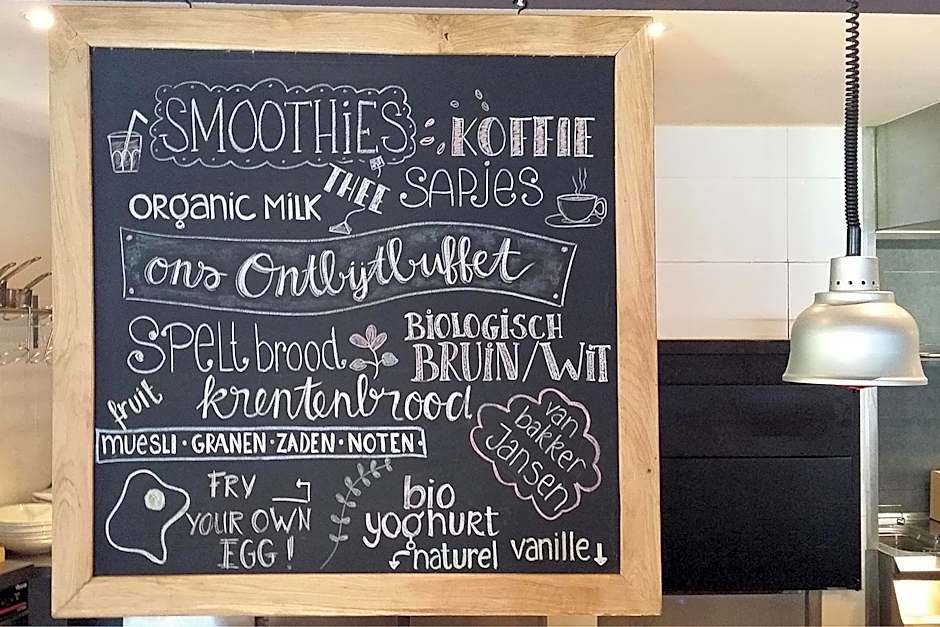 SMOOTHiES
KOFFIE
THEE
SAPjES
ORganic MiLK
ons Ontbijtbuffet
SPELt brood
BiOLOGiSCH
BRUiN/WiT
fruit
krentenbrood
muesli · GRANEN · ZADEN · NOTEN ·
van
bakker
Jansen
FRY
YOUR OWN
EGG!
bio
yoghurt
naturel
vanille